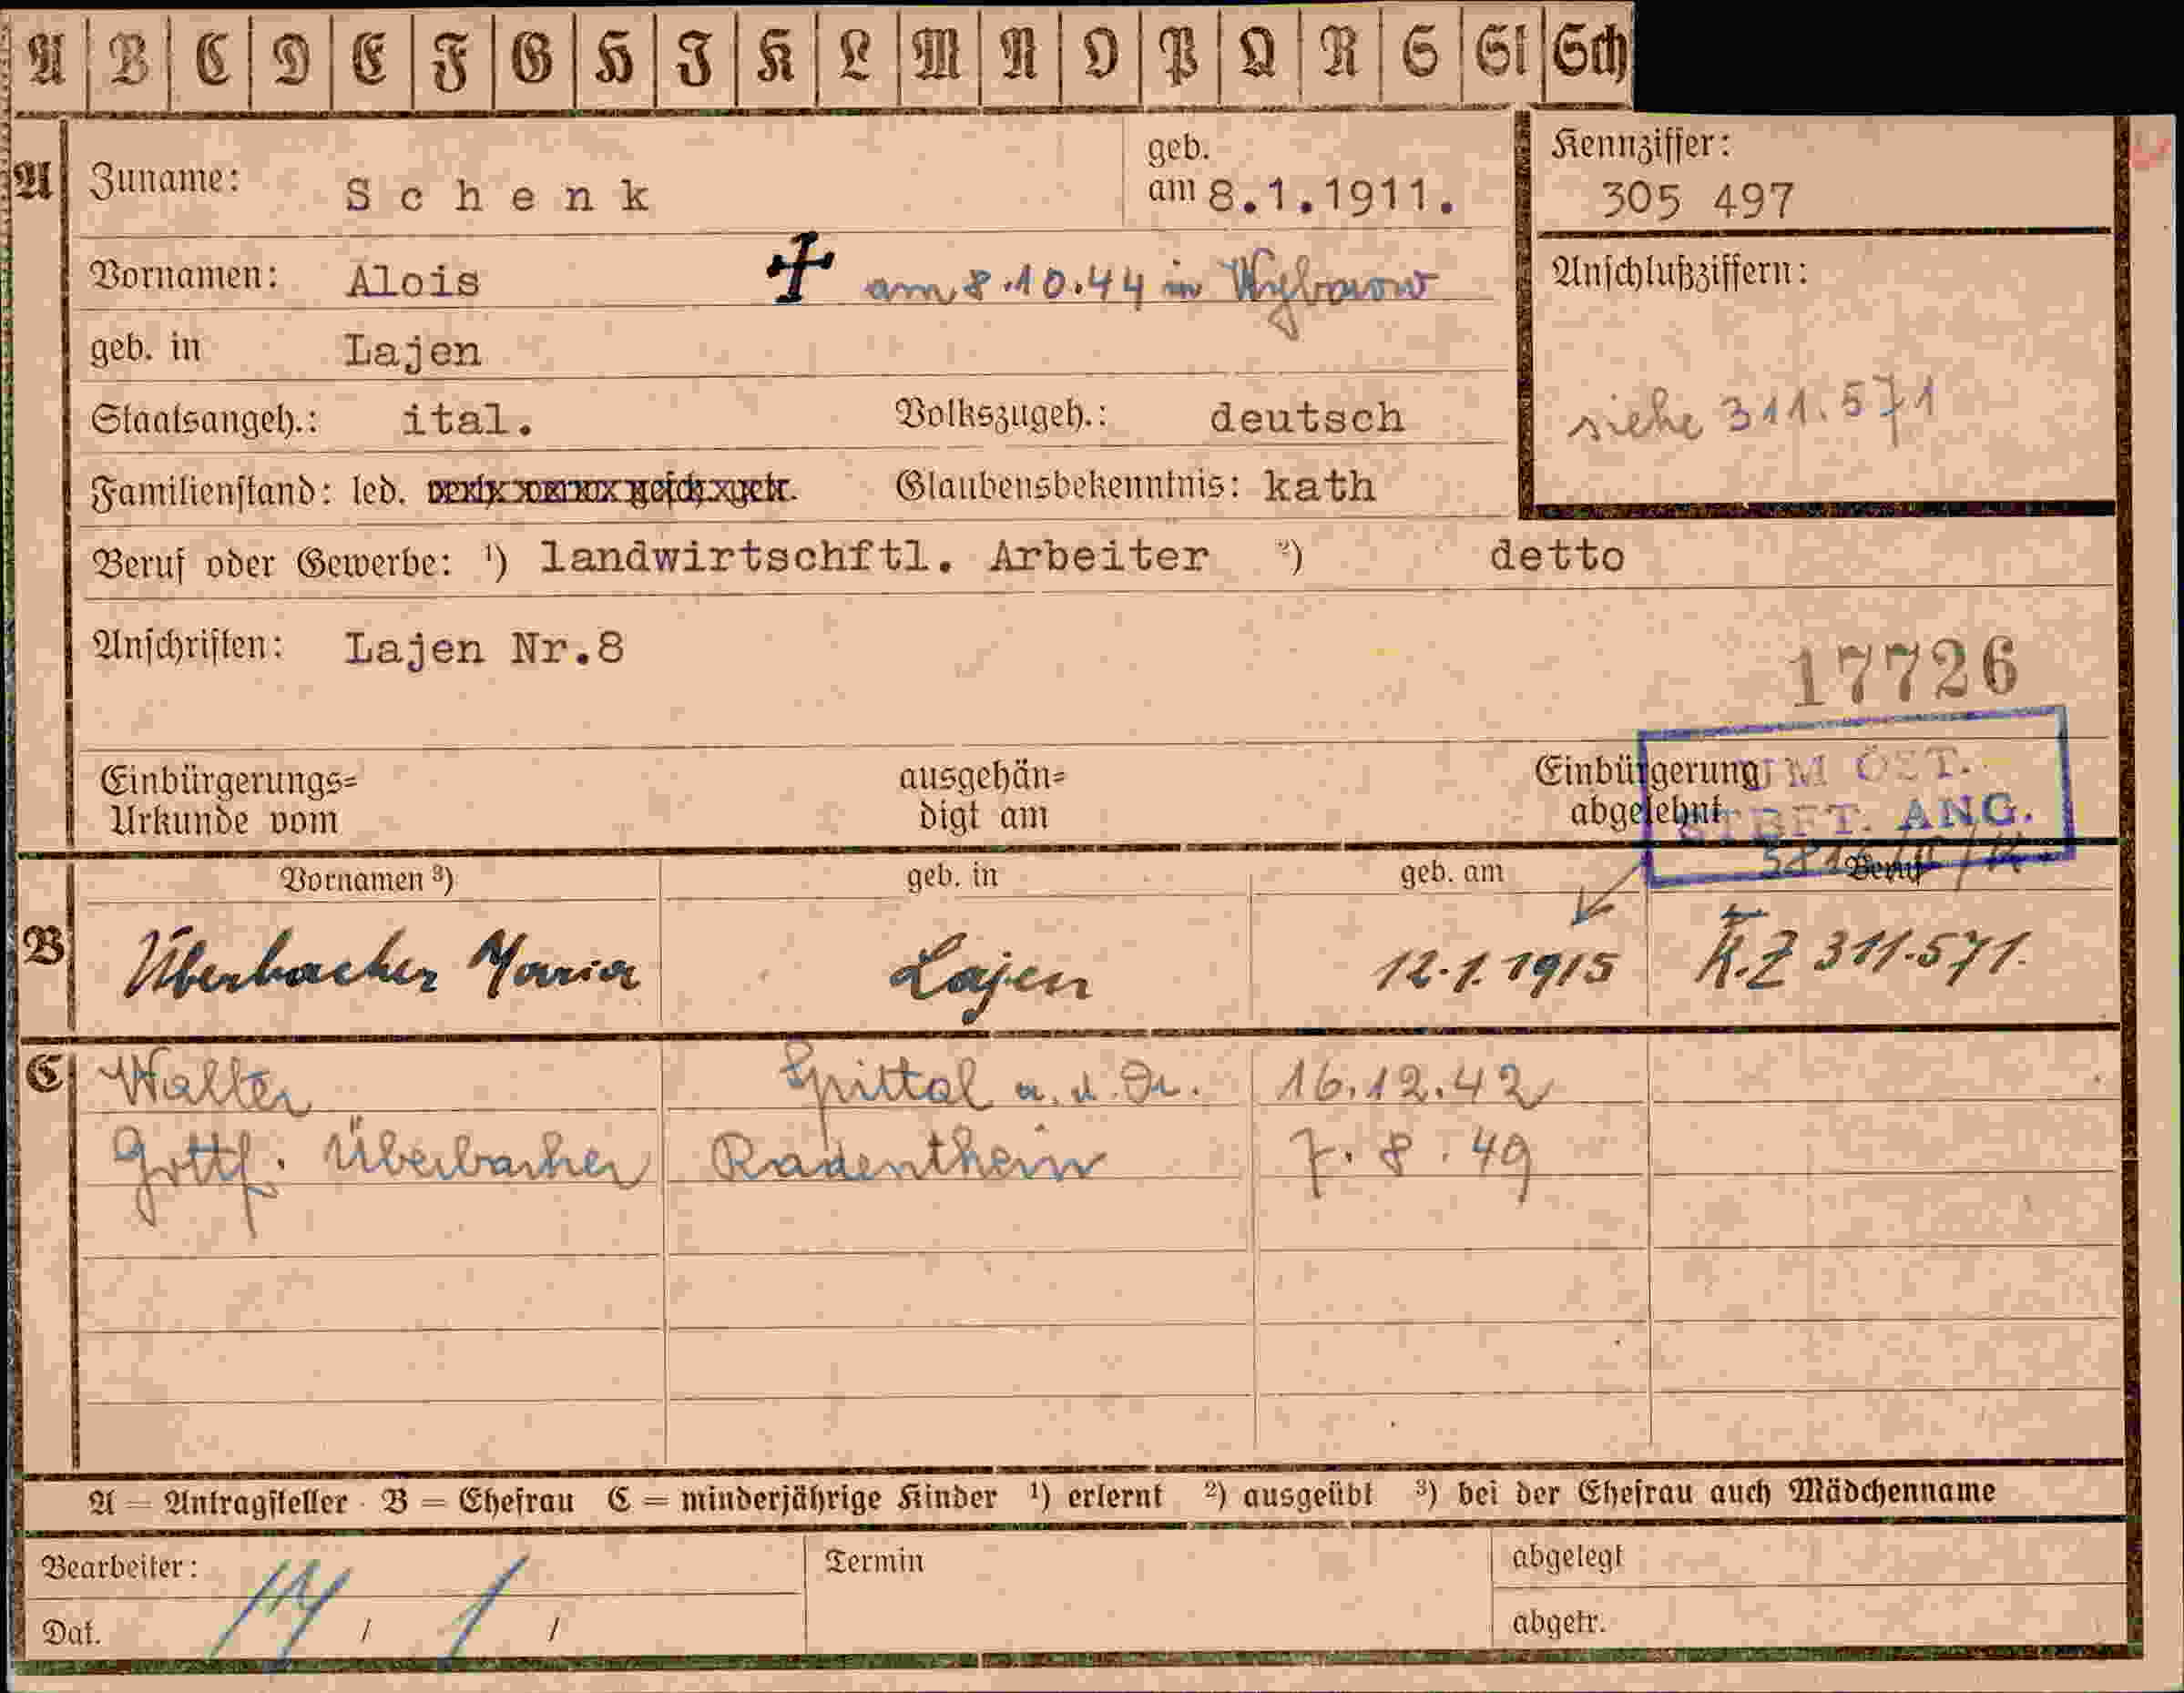 A B C D E F G H J K L M N O P Q R S St Sch
A
Zuname: Schenk
geb. am 8.1.1911.
Kennziffer:
305 497
Vornamen: Alois
am 8.10.44 in
Anschlußziffern:
siehe 311.571
geb. in Lajen
Staatsangeh.: ital. Volkszugeh.: deutsch
Familienstand: led. gesch. getr. Glaubensbekenntnis: kath
Beruf oder Gewerbe: ¹) landwirtschftl. Arbeiter ²) detto
Anschriften: Lajen Nr.8
17726
Einbürgerungs=
Urkunde vom
ausgehän=
digt am
Einbürgerung
abgelehnt
UM ÖST.
STBFT. ANG.
Vornamen ³) geb. in geb. am Beruf
B
Überbacher Maria Lajen 12.1.1915 K.Z 311.571.
C
Walter Spittal a. d. Dr. 16.12.42
Gottf. Überbacher Radenthein 7.8.49
A = Antragsteller B = Ehefrau C = minderjährige Kinder ¹) erlernt ²) ausgeübt ³) bei der Ehefrau auch Mädchenname
Bearbeiter:
Termin
abgelegt
Dat. / /
abgetr.